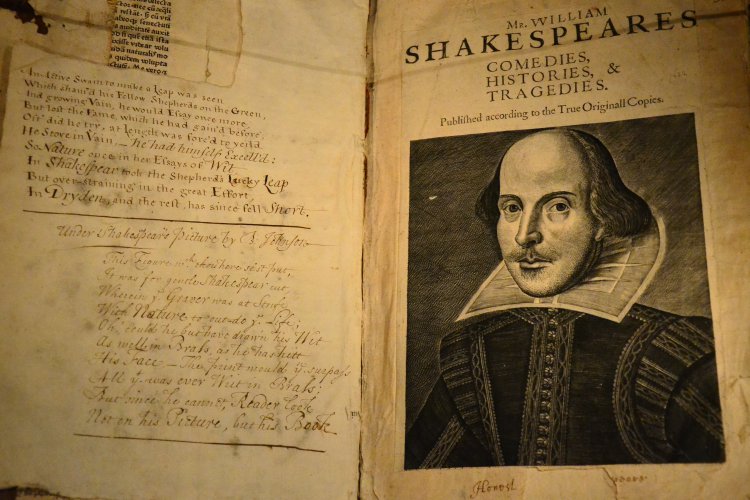 An Active Swain to make a Leap was seen
Which sham'd his Fellow Shepherds on the Green,
And growing Vain, he would Essay once more,
But lost the Fame, which he had gain'd before;
Oft' did he try, at length was forc'd to yeild
He Strove in Vain, — he had himself Excell'd:
So Nature once in her Essays of Wit
In Shakespear took the Shepherd's Lucky Leap
But over-straining in the great Effort,
In Dryden, and the rest, has since fell Short.
Under Shakespear's Picture by Johnson
This Figure thou here se'st put,
It was for gentle Shakespear cut
Wherein ye Graver was at Strife
With Nature to out-do ye Life;
Oh, could he but have drawn his Wit
As well in Brass, as he has hitt
His Face — the Print would
All yt was ever Writ in Brass:
But since he cannot, Reader look
Not on his Picture, but his Book
Mr. WILLIAM
SHAKESPEARES
COMEDIES,
HISTORIES, &
TRAGEDIES.
Published according to the True Originall Copies.
Honest